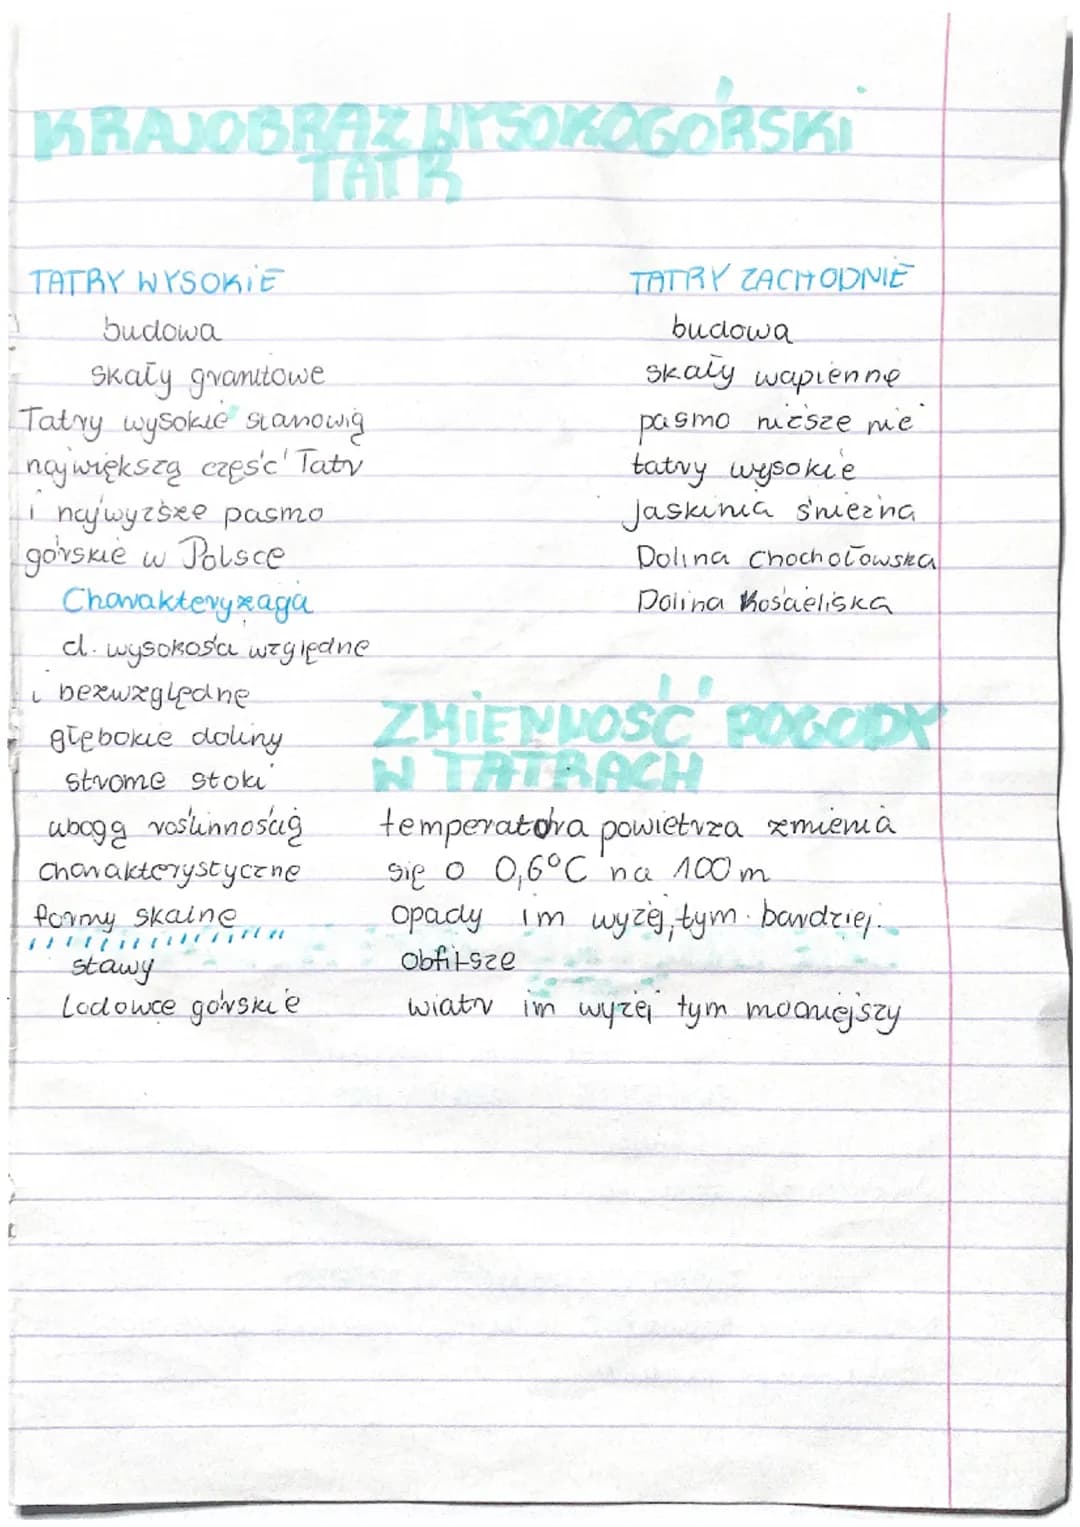 KRAJOBRAZ WYSOKOGÓRSKI
TATR
TATRY WYSOKIE
budowa
skały granitowe
Tatry wysokie stanowią
największą część Tatr
i najwyższe pasmo
górskie w Polsce
Charakteryzaga
d. wysokości względne
i bezwzględne
głębokie doliny
strome stoki
ubogą roślinnością
charakterystyczne
formy skalne
stawy
Lodowce górskie
TATRY ZACHODNIE
budowa
skały wapienne
pasmo nićsze nie
tatry wysokie
Jaskinia śnieżna
Dolina Chochołowska
Dolina Kościeliska
ZMIENNOŚĆ POGODY
W TATRACH
temperatóra powietrza zmienia
się o 0,6°C na 100 m
Opady im wyżej, tym bardziej
obfitsze
wiatr im wyżej tym mocniejszy